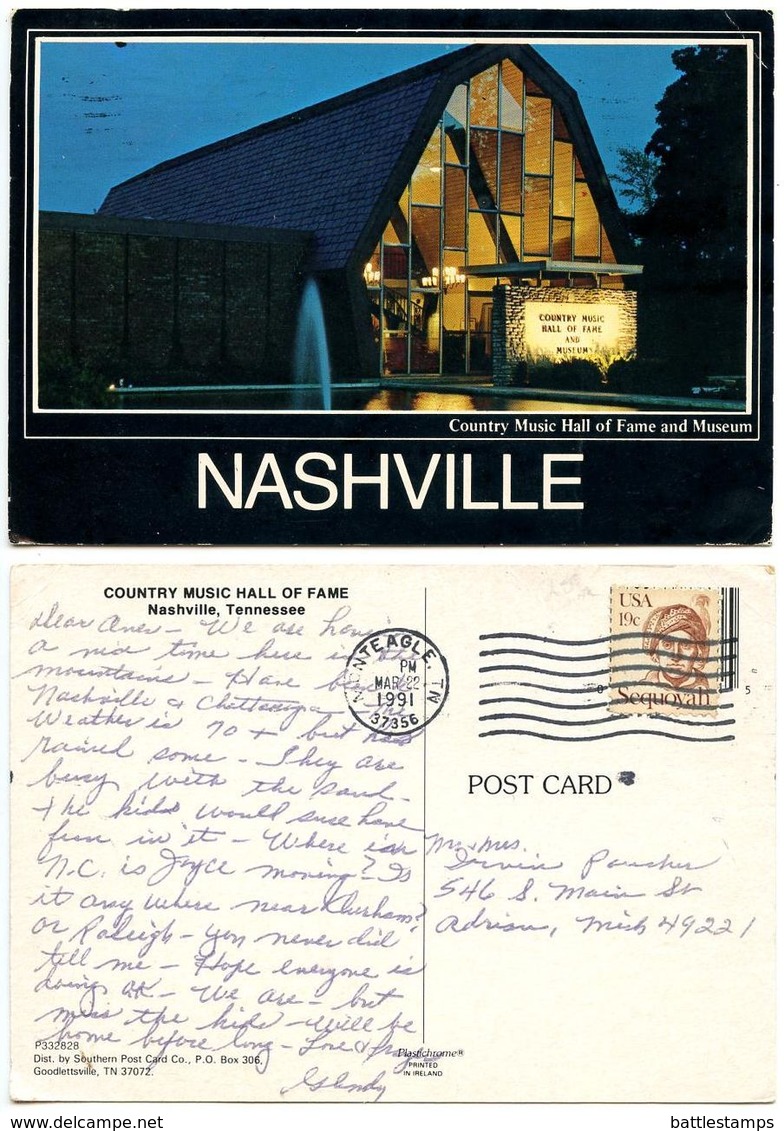 COUNTRY MUSIC
HALL OF FAME
AND
MUSEUM
Country Music Hall of Fame and Museum
NASHVILLE
COUNTRY MUSIC HALL OF FAME
Nashville, Tennessee
Dear Ones - We are having
a nice time here in the
mountains - Have been to
Nashville & Chattanooga The
Weather is 70 + but has
rained some - They are
busy with the sand -
the kids would sure have
fun in it - Where in
N.C. is Joyce moving? Is
it any where near Durham?
or Raleigh - you never did
tell me - Hope everyone is
doing OK - We are - but
miss the kids - Will be
home before long - Love &
MONTEAGLE, TN
PM
MAR 22
1991
37356
USA
19c
Sequoyah
5
POST CARD
Mr & Mrs.
546 S. Main St
Adrian, Mich 49221
P332828
Dist. by Southern Post Card Co., P.O. Box 306,
Goodlettsville, TN 37072.
Plastichrome®
PRINTED
IN IRELAND
delcampe.net
battlestamps